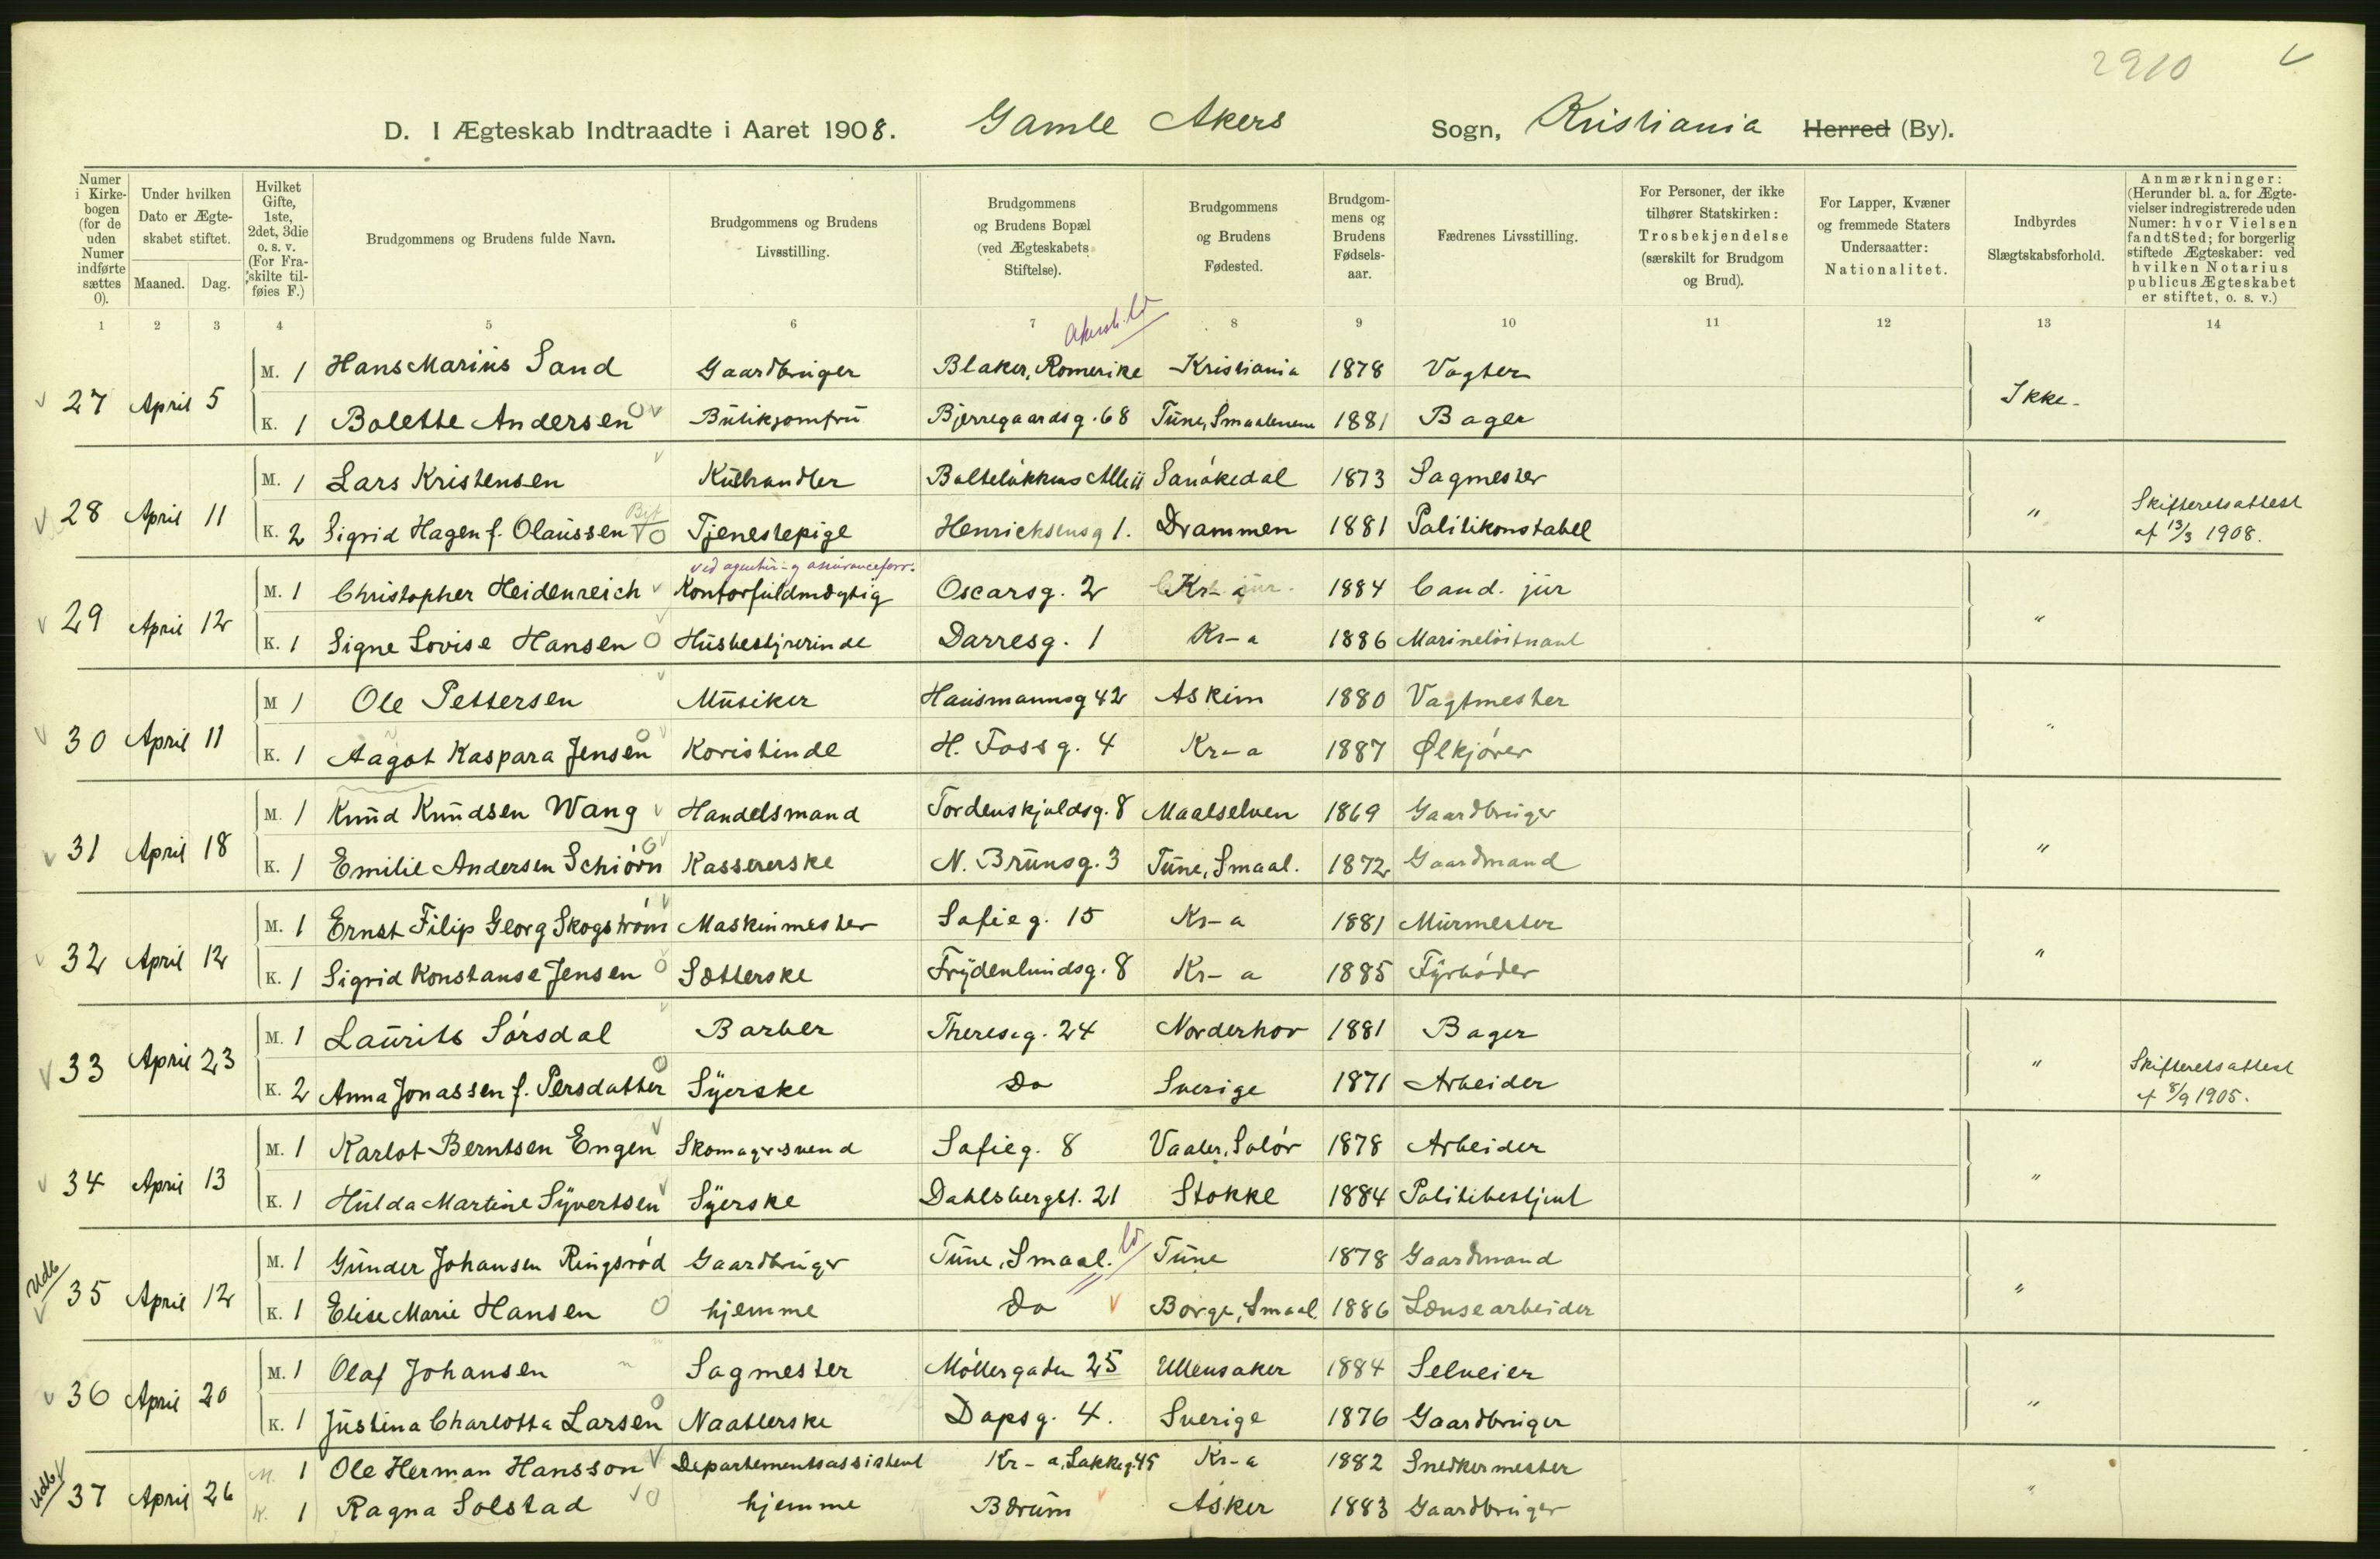 2910
D. I Ægteskab Indtraadte i Aaret 1908. Gamle Akers Sogn, Kristiania Herred (By).
Numer i Kirkebogen (for de uden Numer indførte sættes 0).
Under hvilken Dato er Ægteskabet stiftet.
Maaned. Dag.
Hvilket Gifte, 1ste, 2det, 3die o. s. v. (For Fraskilte tilføies F.)
Brudgommens og Brudens fulde Navn.
Brudgommens og Brudens Livsstilling.
Brudgommens og Brudens Bopæl (ved Ægteskabets Stiftelse).
Brudgommens og Brudens Fødested.
Brudgommens og Brudens Fødselsaar.
Fædrenes Livsstilling.
For Personer, der ikke tilhører Statskirken: Trosbekjendelse (særskilt for Brudgom og Brud).
For Lapper, Kvæner og fremmede Staters Undersaatter: Nationalitet.
Indbyrdes Slægtskabsforhold.
Anmærkninger: (Herunder bl. a. for Ægtevielser indregistrerede uden Numer: hvor Vielsen fandt Sted; for borgerlig stiftede Ægteskaber: ved hvilken Notarius publicus Ægteskabet er stiftet, o. s. v.)
1 2 3 4 5 6 7 8 9 10 11 12 13 14
27 April 5 M. 1 Hans Marius Sand Gaardbruger Blaker, Romerike Kristiania 1878 Vagter Ikke
K. 1 Bolette Andersen Butikjomfru Bjerregaardsg. 68 Tune, Smaalenene 1881 Bager
28 April 11 M. 1 Lars Kristensen Kulhandler Bolteløkkens Alle 11 Sanøkedal 1873 Sagmester "
K. 2 Sigrid Hagen f. Olaussen Tjenestepige Henriksensg 1. Drammen 1881 Politikonstabel Skifteretsattest af 13/3 1908.
ved agentur- og assuranceforr.
29 April 12 M. 1 Christopher Heidenreich Kontorfuldmægtig Oscarsg. 2 Kr-a 1884 Cand. jur "
K. 1 Signe Lovise Hansen Husbestyrerinde Darresg. 1 Kr-a 1886 Marineløitnant
30 April 11 M 1 Ole Pettersen Musiker Hausmannsg 42 Askim 1880 Vagtmester "
K. 1 Aagot Kaspara Jensen Koristinde H. Fossg. 4 Kr-a 1887 Ølkjører
31 April 18 M. 1 Knud Knudsen Wang Handelsmand Tordenskjoldsg. 8 Maalselven 1869 Gaardbruger "
K. 1 Emilie Andersen Schiørn Kassererske N. Brunsg. 3 Tune, Smaal. 1872 Gaardmand
32 April 12 M. 1 Ernst Filip Georg Skogstrøm Maskinmester Sofieg. 15 Kr-a 1881 Murmester "
K. 1 Sigrid Konstanse Jensen Sætterske Frydenlundsg. 8 Kr-a 1885 Fyrbøder
33 April 23 M. 1 Laurits Sørsdal Barber Thereseg. 24 Norderhov 1881 Bager "
K. 2 Anna Jonassen f. Persdatter Syerske Do Sverige 1871 Arbeider Skifteretsattest af 8/9 1905.
34 April 13 M. 1 Karlot Berntsen Engen Skomagersvend Sofieg. 8 Vaaler, Solør 1878 Arbeider "
K. 1 Hulda Martine Syvertsen Syerske Dahlsbergst. 21 Stokke 1884 Politibetjent
Udb
35 April 12 M. 1 Gunder Johansen Ringsrød Gaardbruger Tune, Smaal. Tune 1878 Gaardmand "
K. 1 Elise Marie Hansen hjemme Do Borge, Smaal 1886 Lænsearbeider
36 April 20 M. 1 Olaf Johansen Sagmester Møllergaden 25 Ullensaker 1884 Selveier "
K. 1 Justina Charlotta Larsen Naatlerske Dopsg. 4. Sverige 1876 Gaardbruger
Udb
37 April 26 M. 1 Ole Herman Hansson Departementsassistent Kr-a, Løkkeg. 45 Kr-a 1882 Snedkermester "
K. 1 Ragna Solstad hjemme Bærum Asker 1883 Gaardbruger